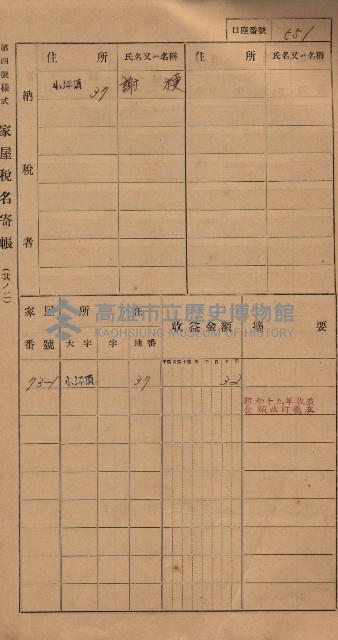 口座番號 551
第四號樣式
家屋稅名寄帳
(其ノ二)
納稅者
住所 氏名又ハ名稱 住所 氏名又ハ名稱
小坪頂 37 謝
家屋所在 收益金額 摘要
番號 大字 字 地番
73-1 小坪頂 37 32
昭和十九年收益
金額改訂
高雄市立歷史博物館
KAOHSIUNG MUSEUM OF HISTORY